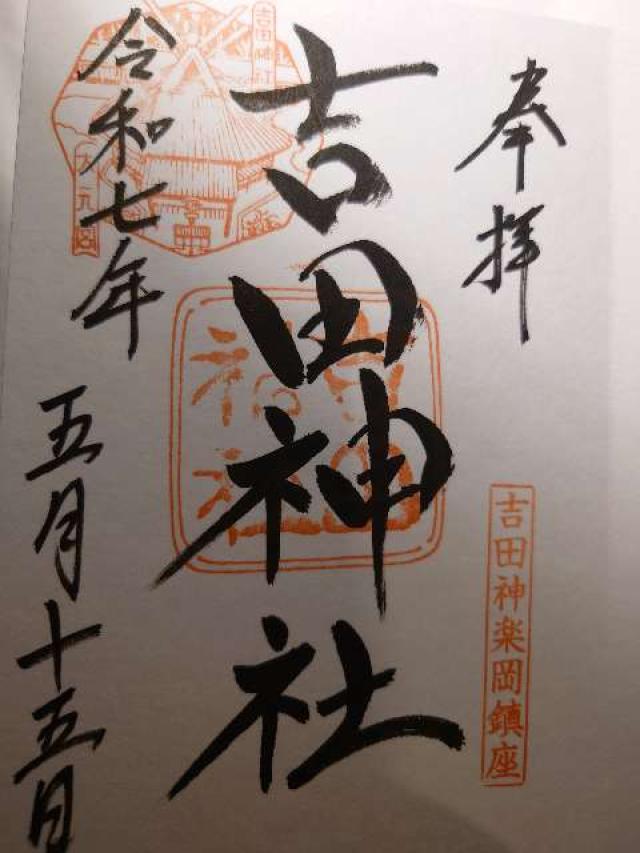 奉拝
吉田神楽岡鎮座
吉田神社
吉田神社
吉田神社
令和七年
五月十五日